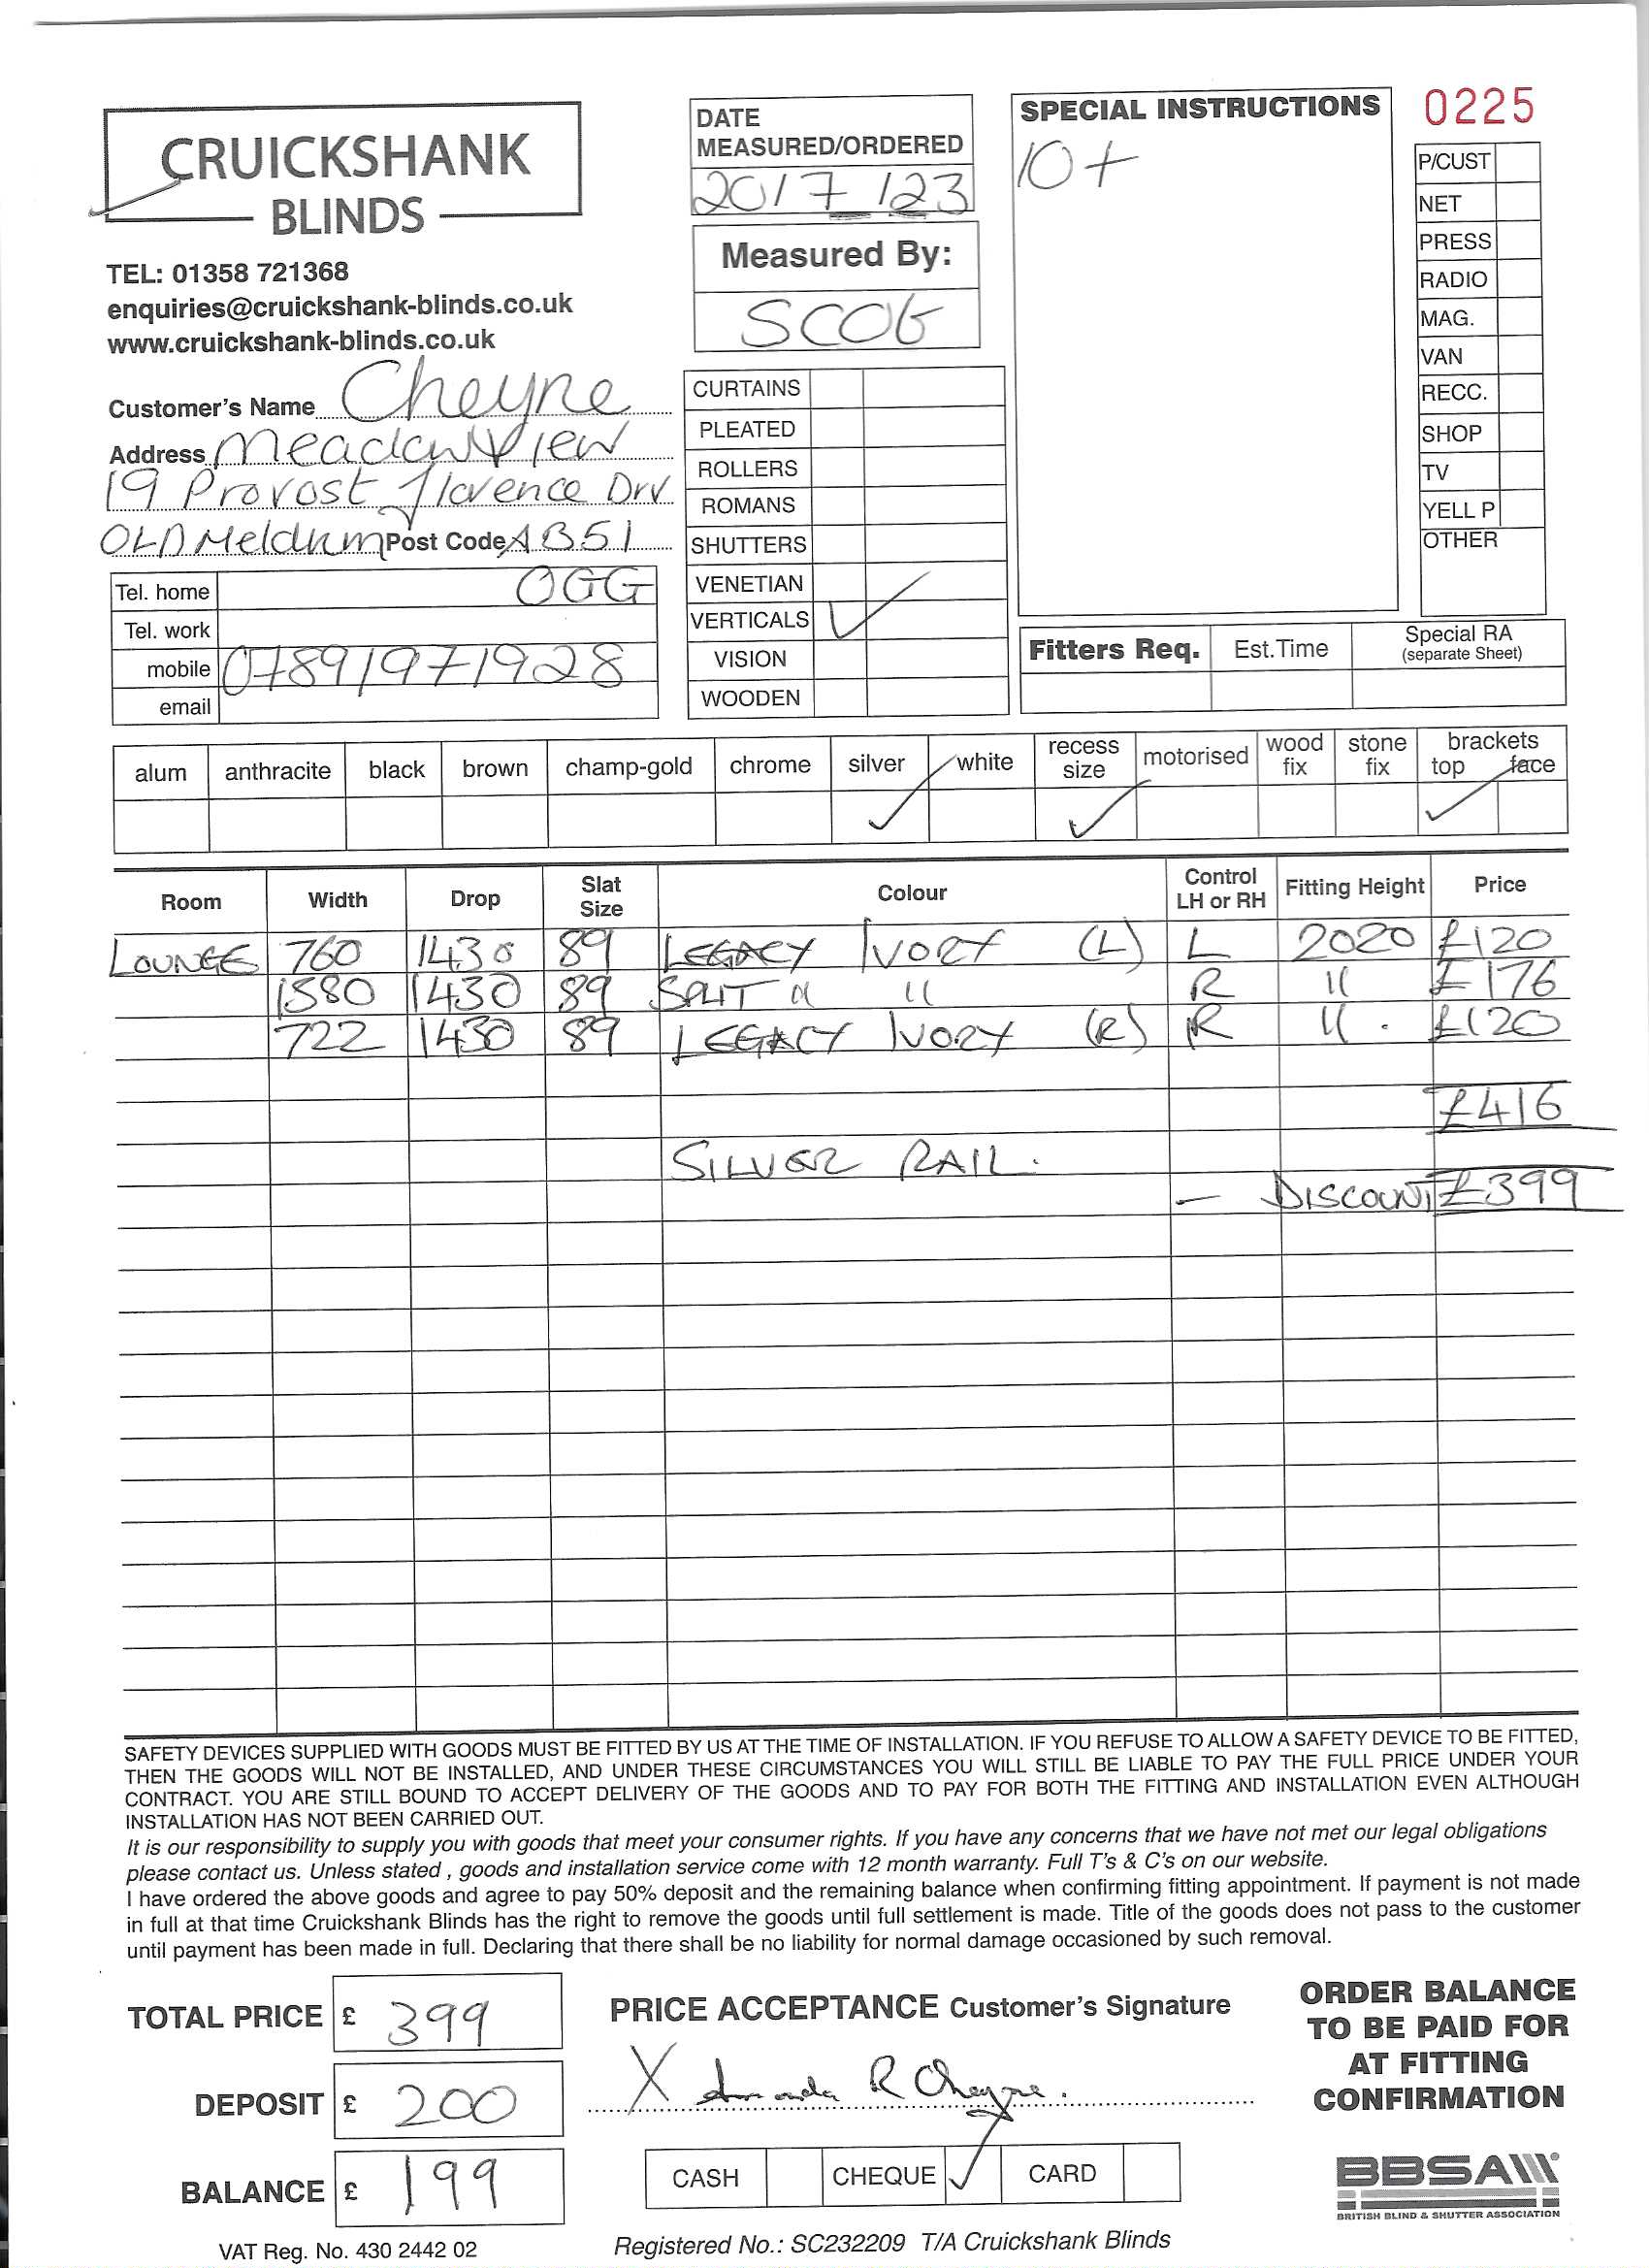 CRUICKSHANK
BLINDS
TEL: 01358 721368
enquiries@cruickshank-blinds.co.uk
www.cruickshank-blinds.co.uk
Customer's Name Cheyne
Address Meadow View
19 Provost Florence Drv
OLD Meldrum Post Code AB51
OGG
Tel. home
Tel. work
mobile 07891971928
email
DATE
MEASURED/ORDERED
20/7/23
Measured By:
SCOG
CURTAINS
PLEATED
ROLLERS
ROMANS
SHUTTERS
VENETIAN
VERTICALS ✓
VISION
WOODEN
SPECIAL INSTRUCTIONS
10+
0225
P/CUST
NET
PRESS
RADIO
MAG.
VAN
RECC.
SHOP
TV
YELL P
OTHER
Fitters Req. Est.Time Special RA
(separate Sheet)
alum anthracite black brown champ-gold chrome silver white recess size motorised wood fix stone fix brackets top face
✓ ✓ ✓
Room Width Drop Slat Size Colour Control LH or RH Fitting Height Price
LOUNGE 760 1430 89 LEGACY IVORY (L) L 2020 £120
1580 1430 89 SPLIT " " R " £176
722 1430 89 LEGACY IVORY (R) R " £120
£416
SILVER RAIL.
— DISCOUNT £399
SAFETY DEVICES SUPPLIED WITH GOODS MUST BE FITTED BY US AT THE TIME OF INSTALLATION. IF YOU REFUSE TO ALLOW A SAFETY DEVICE TO BE FITTED,
THEN THE GOODS WILL NOT BE INSTALLED, AND UNDER THESE CIRCUMSTANCES YOU WILL STILL BE LIABLE TO PAY THE FULL PRICE UNDER YOUR
CONTRACT. YOU ARE STILL BOUND TO ACCEPT DELIVERY OF THE GOODS AND TO PAY FOR BOTH THE FITTING AND INSTALLATION EVEN ALTHOUGH
INSTALLATION HAS NOT BEEN CARRIED OUT.
It is our responsibility to supply you with goods that meet your consumer rights. If you have any concerns that we have not met our legal obligations
please contact us. Unless stated , goods and installation service come with 12 month warranty. Full T's & C's on our website.
I have ordered the above goods and agree to pay 50% deposit and the remaining balance when confirming fitting appointment. If payment is not made
in full at that time Cruickshank Blinds has the right to remove the goods until full settlement is made. Title of the goods does not pass to the customer
until payment has been made in full. Declaring that there shall be no liability for normal damage occasioned by such removal.
TOTAL PRICE £ 399
DEPOSIT £ 200
BALANCE £ 199
VAT Reg. No. 430 2442 02
PRICE ACCEPTANCE Customer's Signature
X Amanda R Cheyne.
CASH CHEQUE ✓ CARD
Registered No.: SC232209 T/A Cruickshank Blinds
ORDER BALANCE
TO BE PAID FOR
AT FITTING
CONFIRMATION
BBSA
BRITISH BLIND & SHUTTER ASSOCIATION